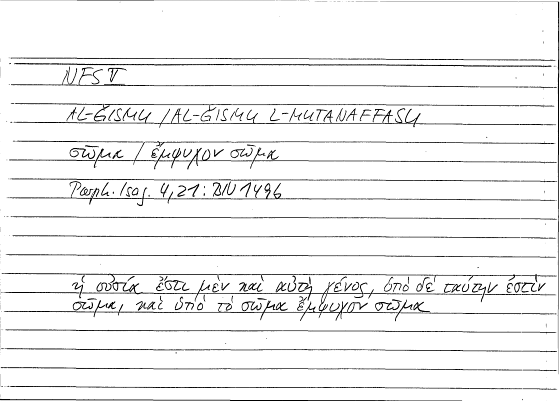 NFS V
AL-ǦISMU / AL-ǦISMU L-MUTANAFFASU
σῶμα / ἔμψυχον σῶμα
Porph. Isag. 4,21: BN 149b
ἡ οὐσία ἔστι μὲν καὶ αὐτὴ γένος, ὑπὸ δὲ ταύτην ἐστὶν
σῶμα, καὶ ὑπὸ τὸ σῶμα ἔμψυχον σῶμα